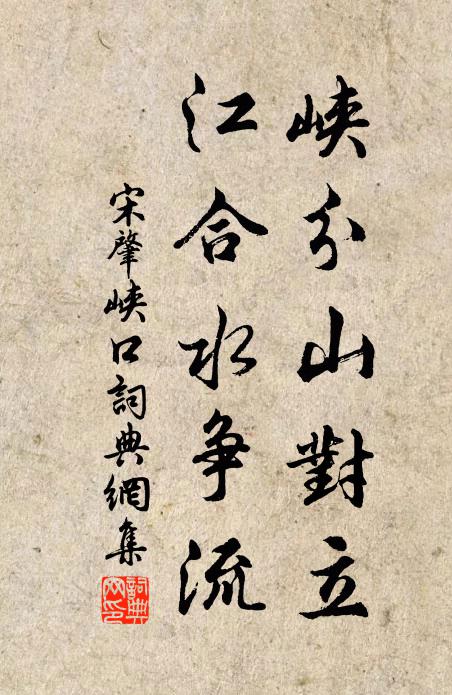 峡分山對立
江合水争流
宋肇峡口詞典網集
詞典網印